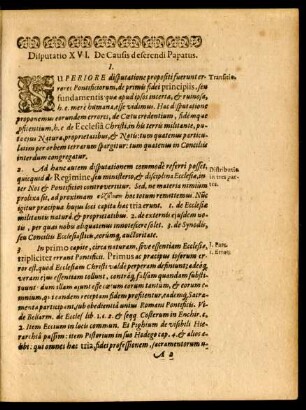 Disputatio XVI. De Causis deserendi Papatus.
I.
SUPERIORE disputatione propositi fuerunt er-
rores Pontificiorum, de primis fidei principiis, seu
fundamentis quæ apud ipsos incerta, & ruinosa,
h. e. merè humana, esse vidimus. Hac disputatione
proponemus eorundem errores, de Cœtu credentium, fidemque
profitentium, h. e. de Ecclesiâ Christi, in his terris militante, vi-
dentes Naturâ, proprietatibus, & Notis: tum quatenus particu-
latim per orbem terrarum spargitur: tum quatenus in Conciliis
interdum congregatur.
Transitio.
2. Ad hanc autem disputationem commodè referri posset,
quicquid de Regimine, seu ministeriis, & disciplina Ecclesiæ, in-
ter Nos & Pontificios controvertitur. Sed, ne materiis nimium
prolixa sit, ad proximam hoc totum remittemus. Nunc
igitur præcipua hujus loci capita hæc tria erunt. 1. de Ecclesiæ
militantis naturâ & proprietatibus. 2. de externis ejusdem no-
tis, per quas nobis aliquatenus innotescere solet. 3. de Synodis,
seu Conciliis Ecclesiasticis, eorumque auctoritate.
Distributio
in tres par-
tes.
In primo capite, circa naturam, sive essentiam Ecclesiæ,
tripliciter errant Pontificii. Primus ac præcipuus ipsorum er-
ror est, quod Ecclesiam Christi valdè perperam definiunt;
essentiam tollunt, contrà
dum quendam
eorum tantùm, & eorum com-
munium, qui eandem receptam fidem profitentur, eademque Sacra-
menta participant, sub obedientia unius Romani Pontificis. Vi-
de Bellarm. de Eccles. lib. 1. c. 2. & seqq. Costerum in Enchir. c.
2. Item Eccium in locis commun. Et Pighium de visibili Hie-
rarchia passim: item Pistorium in suo Hodego cap. 4. & alios a-
libi: qui omnes hæc tria, fidei professionem, sacramentorum u-
1. Pars.
1. Error.
A 2